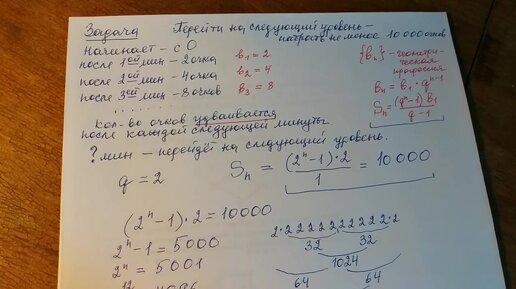 Задача Перейти на следующий уровень –
набрать не менее 10 000 очков
Начинает – с 0
после 1ой мин – 2 очка b₁ = 2 {bₙ} – геометри-
ческая
прогрессия
после 2ой мин – 4 очка b₂ = 4
после 3ей мин – 8 очков b₃ = 8 bₙ = b₁ · qⁿ⁻¹
Sₙ = (qⁿ-1)·b₁ / q-1
. . . . . . . .
Кол-во очков удваивается
после каждой следующей минуты
? мин – перейдёт на следующий уровень.
q = 2 Sₙ = (2ⁿ-1)·2 / 1 = 10 000
(2ⁿ-1)·2 = 10000
2ⁿ-1 = 5000
2ⁿ = 5001
2·2 2 2 2 2 2 2 2 2 2·2
32 32
1024
64 64